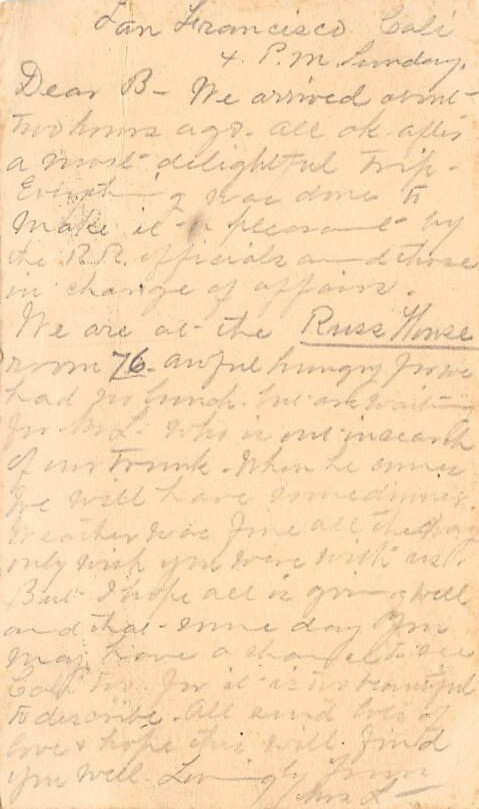 San Francisco Cali
4 P.M Sunday.
Dear B- We arrived about
two hours ago. all ok after
a most delightful trip-
Everything was done to
make it a pleasant by
the R.R. officials and those
in charge of affairs.
We are at the Russ House
room 76. awful hungry for we
had no lunch. but are waiting
for Mr L. who is out in search
of our trunk. When he comes
we will have some dinner.
Weather was fine all the way
only wish you were with us.
But I hope all is going well
and that some day you
may have a chance to see
Cali too for it is too beautiful
to describe. All send lots of
love & hope this will find
you well. Lovingly Yours
Mrs L